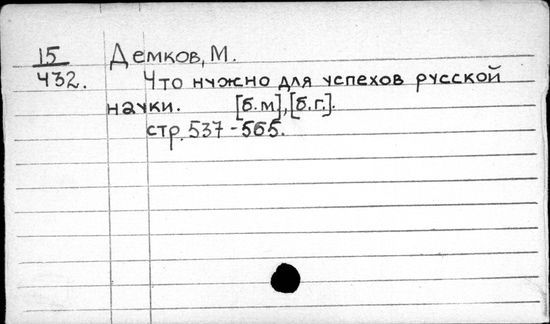 15 Демков, М.
432. Что нужно для успехов русской
науки. [б.м], [б.г.].
стр. 537-565.